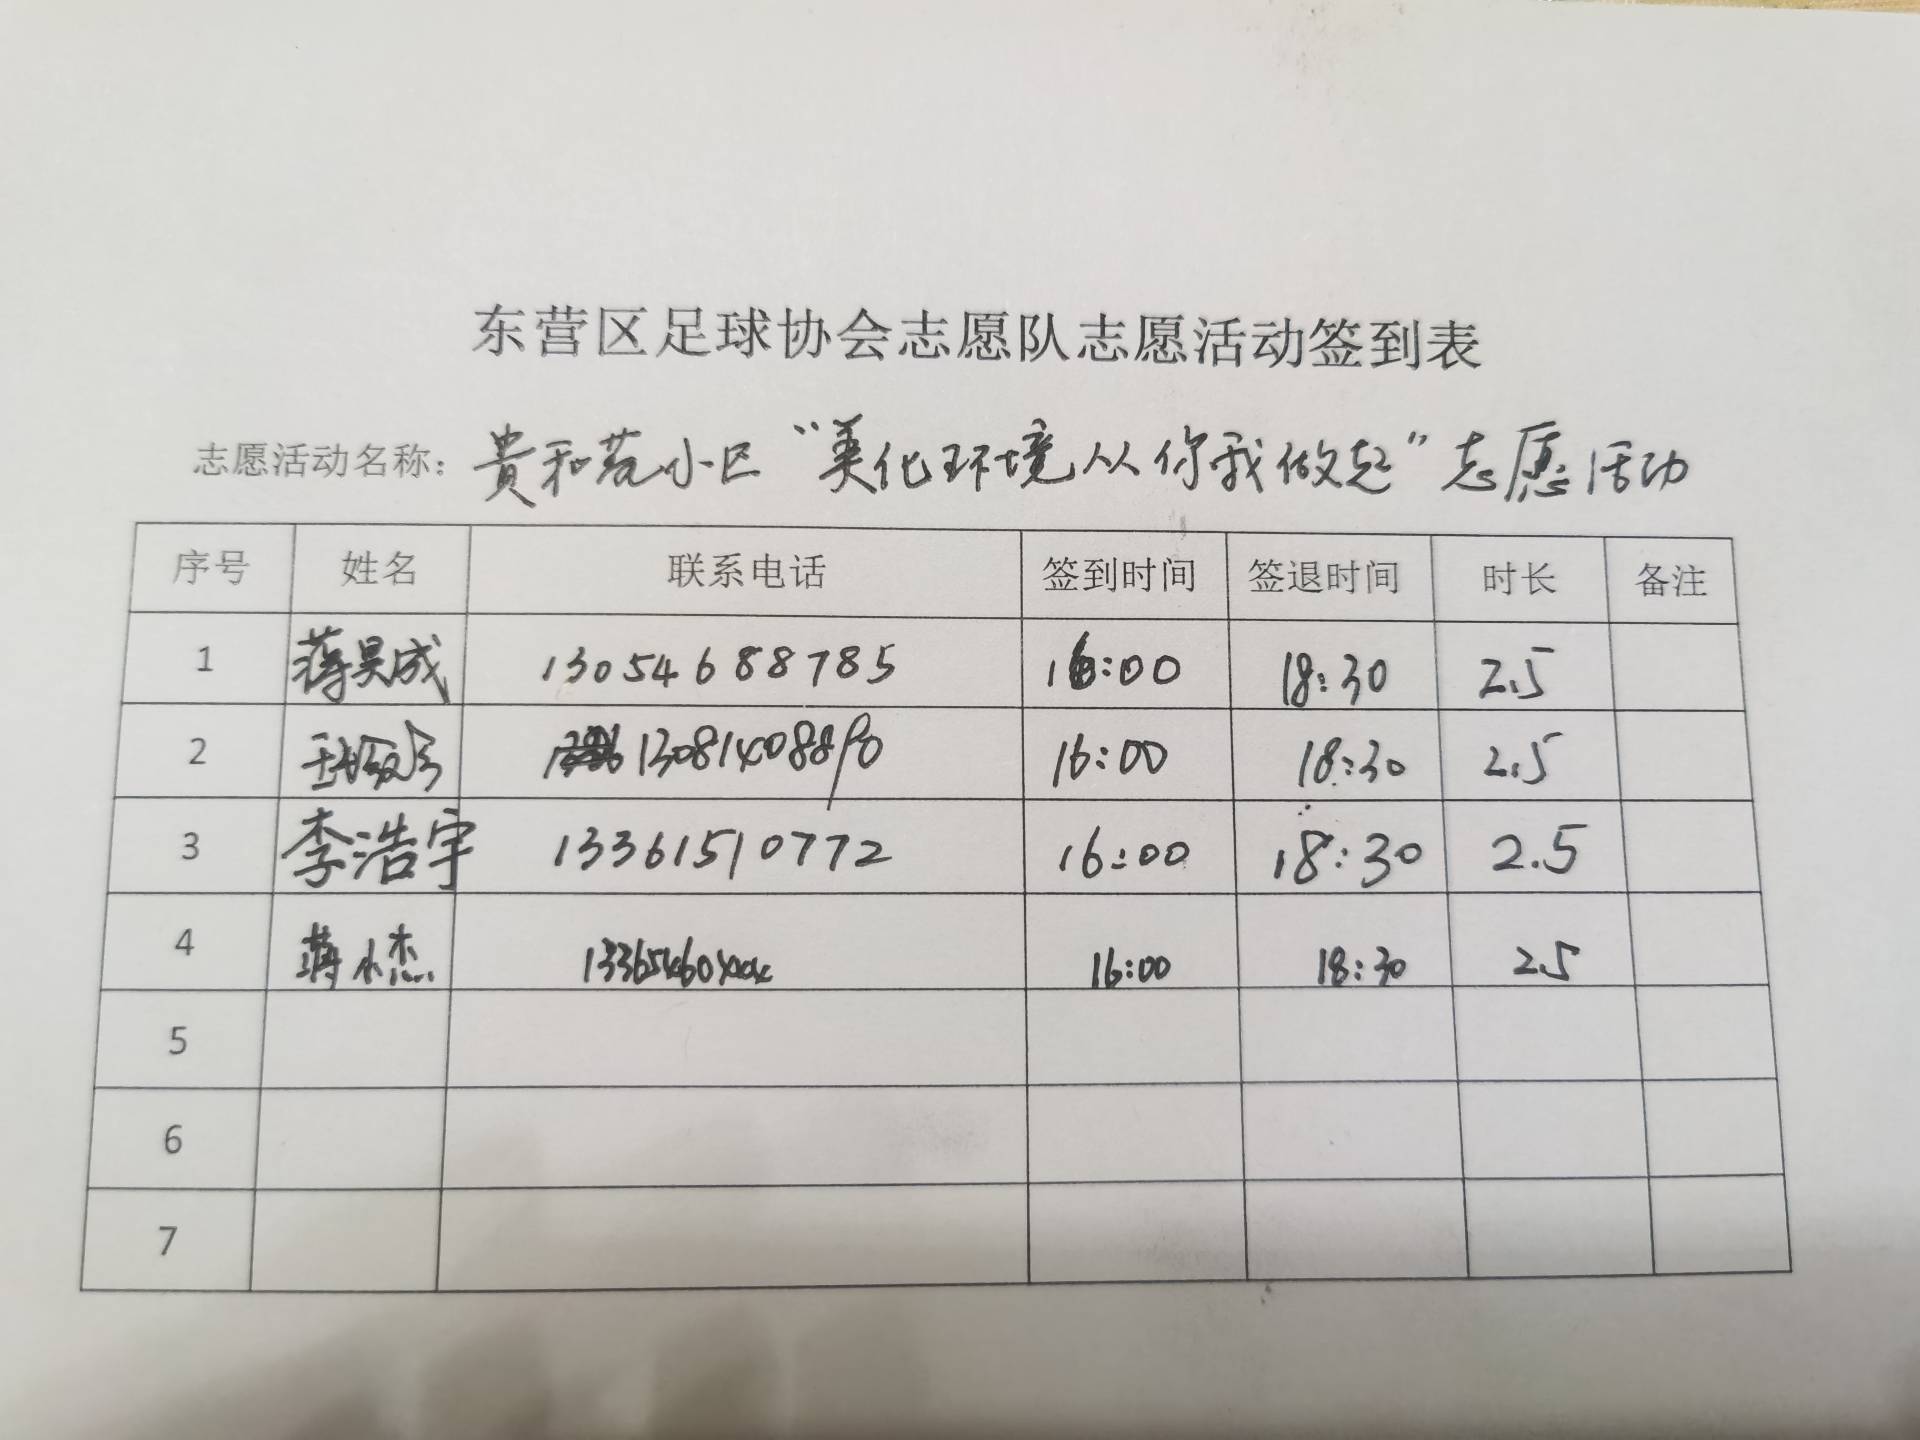 东营区足球协会志愿队志愿活动签到表
志愿活动名称：贵和苑小区“美化环境从你我做起”志愿活动
序号 姓名 联系电话 签到时间 签退时间 时长 备注
1 蒋昊成 13054688785 16:00 18:30 2.5
2 13081408890 16:00 18:30 2.5
3 李浩宇 13361510772 16:00 18:30 2.5
4 蒋小杰 16:00 18:30 2.5
5
6
7